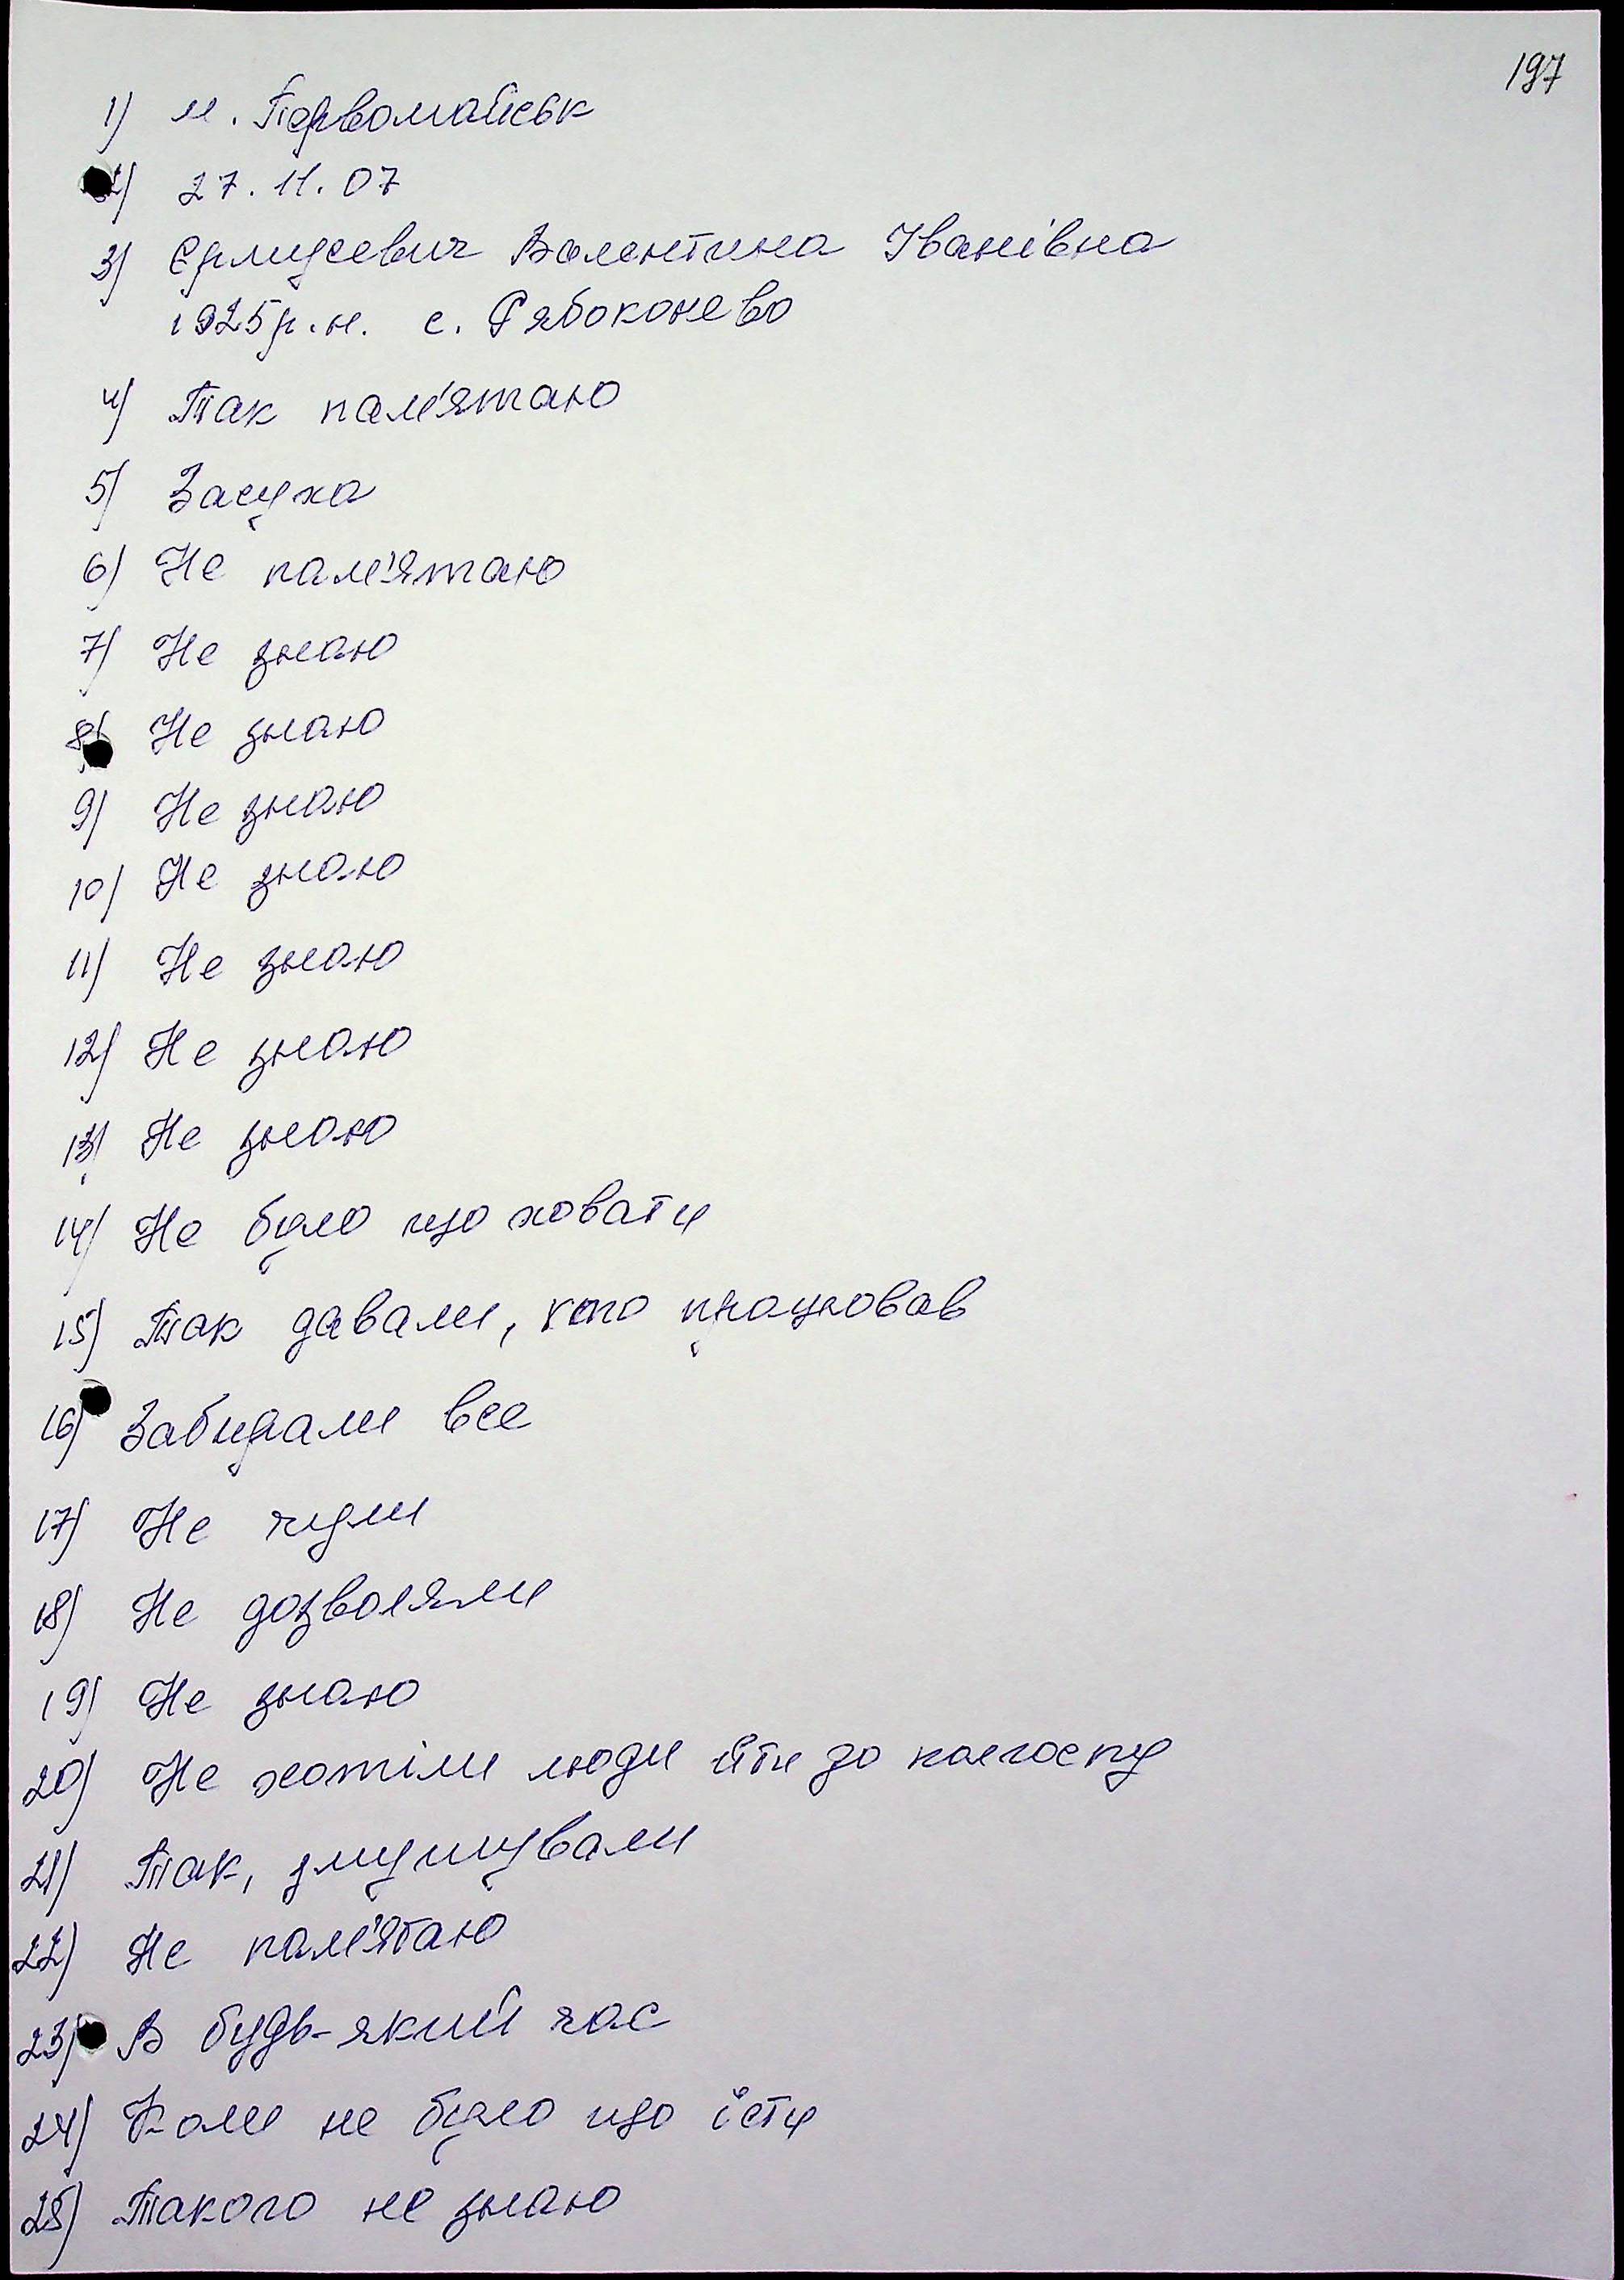 197
1) м. Первомайськ
2) 27.11.07
3) Єрмусевич Валентина Іванівна
1925р.н. с. Рябоконево
4) Так пам'ятаю
5) Засуха
6) Не пам'ятаю
7) Не знаю
8) Не знаю
9) Не знаю
10) Не знаю
11) Не знаю
12) Не знаю
13) Не знаю
14) Не було що ховати
15) Так давали, хто працював
16) Забирали все
17) Не чули
18) Не дозволяли
19) Не знаю
20) Не хотіли люди йти до колгоспу
21) Так, змушували
22) Не пам'ятаю
23) В будь-який час
24) Коли не було що їсти
25) Такого не знаю